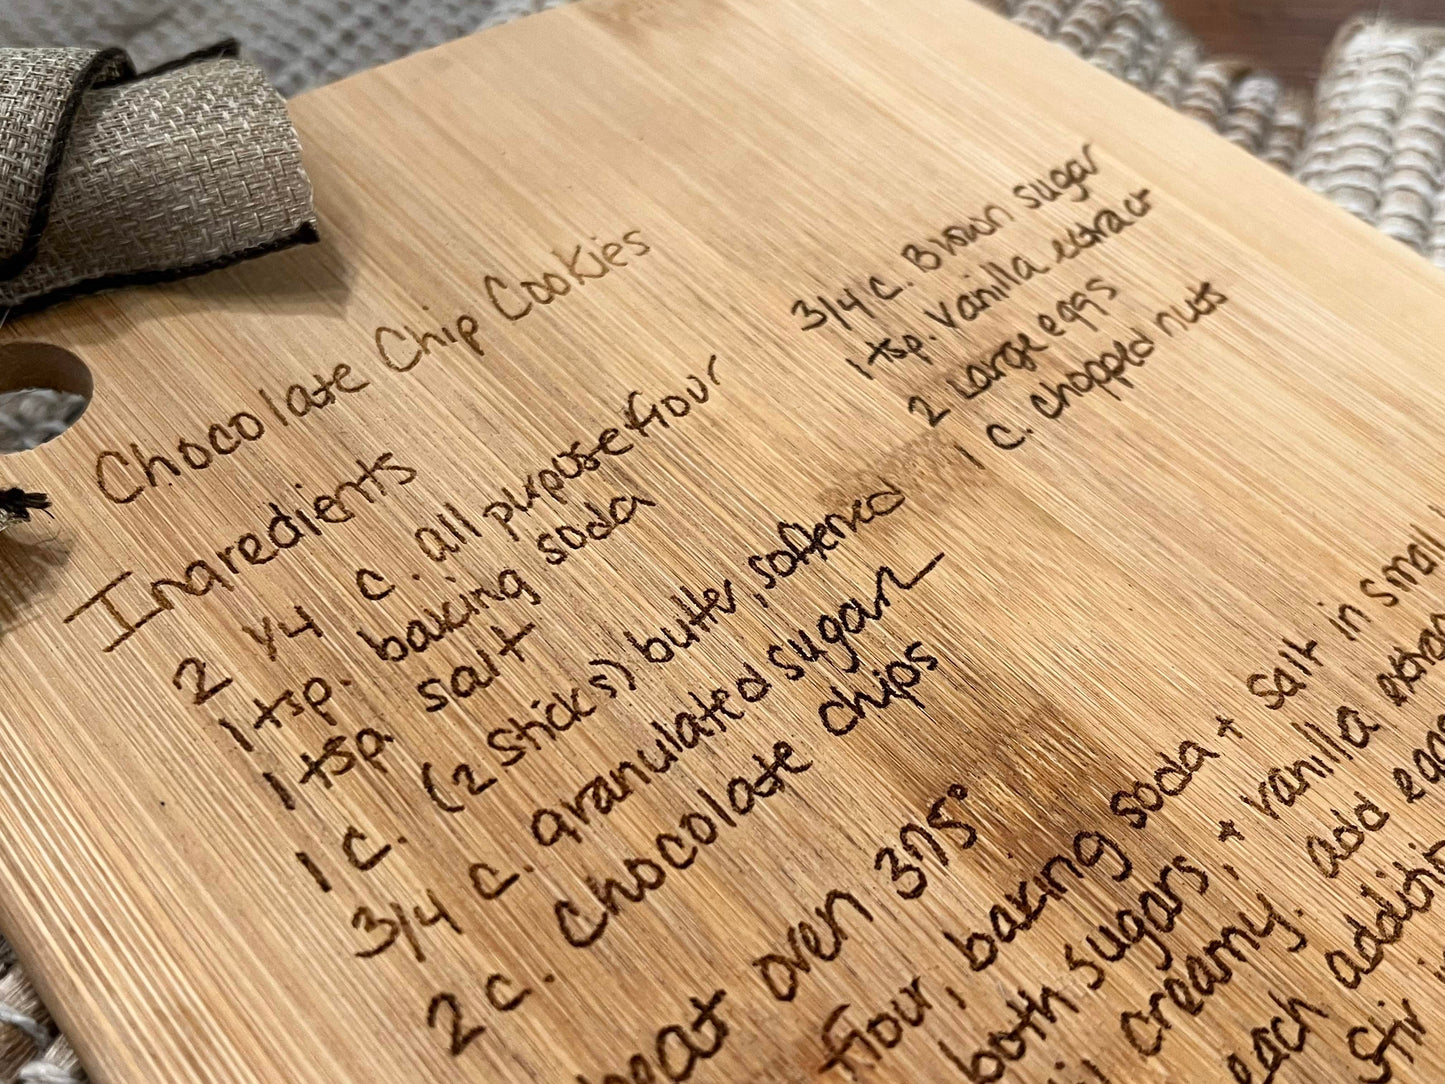 Chocolate Chip Cookies
Ingredients
2 1/4 c. all purpose flour
1 tsp. baking soda
1 tsp. salt
1 c. (2 sticks) butter, softened
3/4 c. granulated sugar
2 c. chocolate chips
3/4 c. Brown sugar
1 tsp. vanilla extract
2 Large eggs
1 c. chopped nuts
oven 375°
flour, baking soda + salt in small
both sugars, + vanilla
creamy. add
each addition
Stir